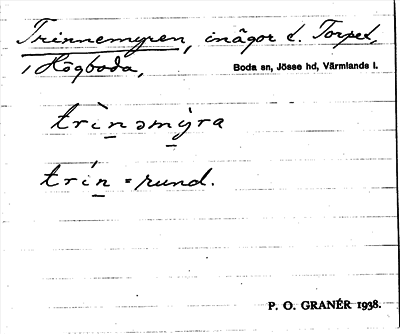 Trinnemyren, inägor t. Torpet,
i Högboda, Boda sn, Jösse hd, Värmlands l.
trìnəmỳra
trín = rund.
P. O. GRANÉR 1938.